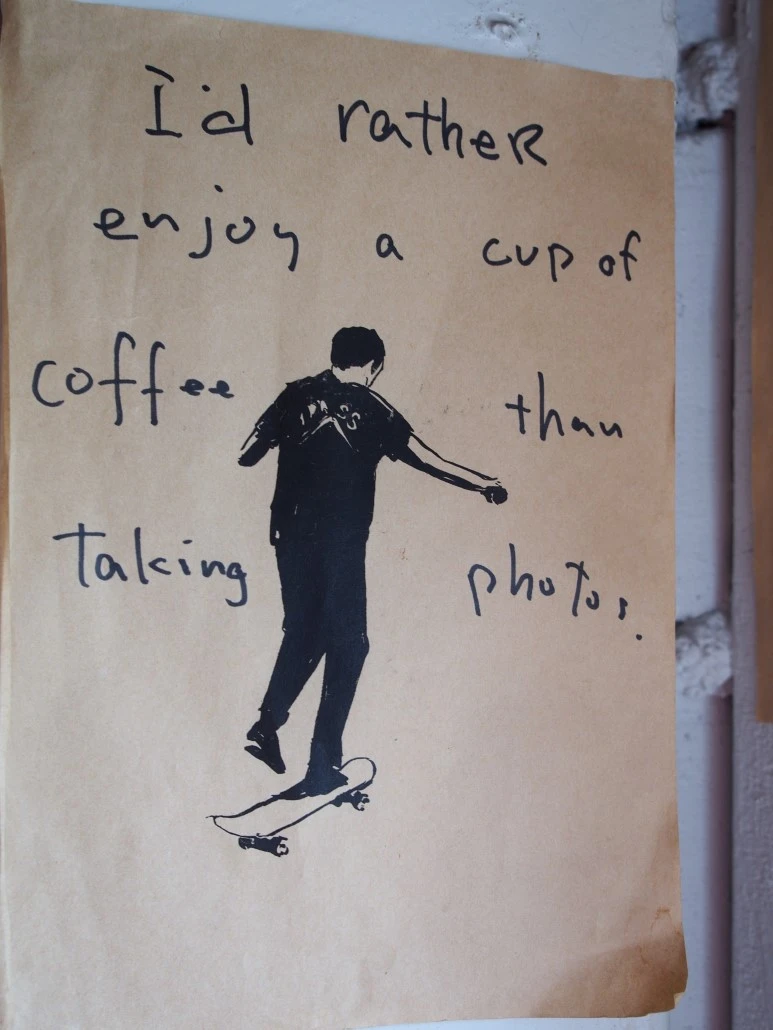 I'd rather
enjoy a cup of
coffee than
taking photos.